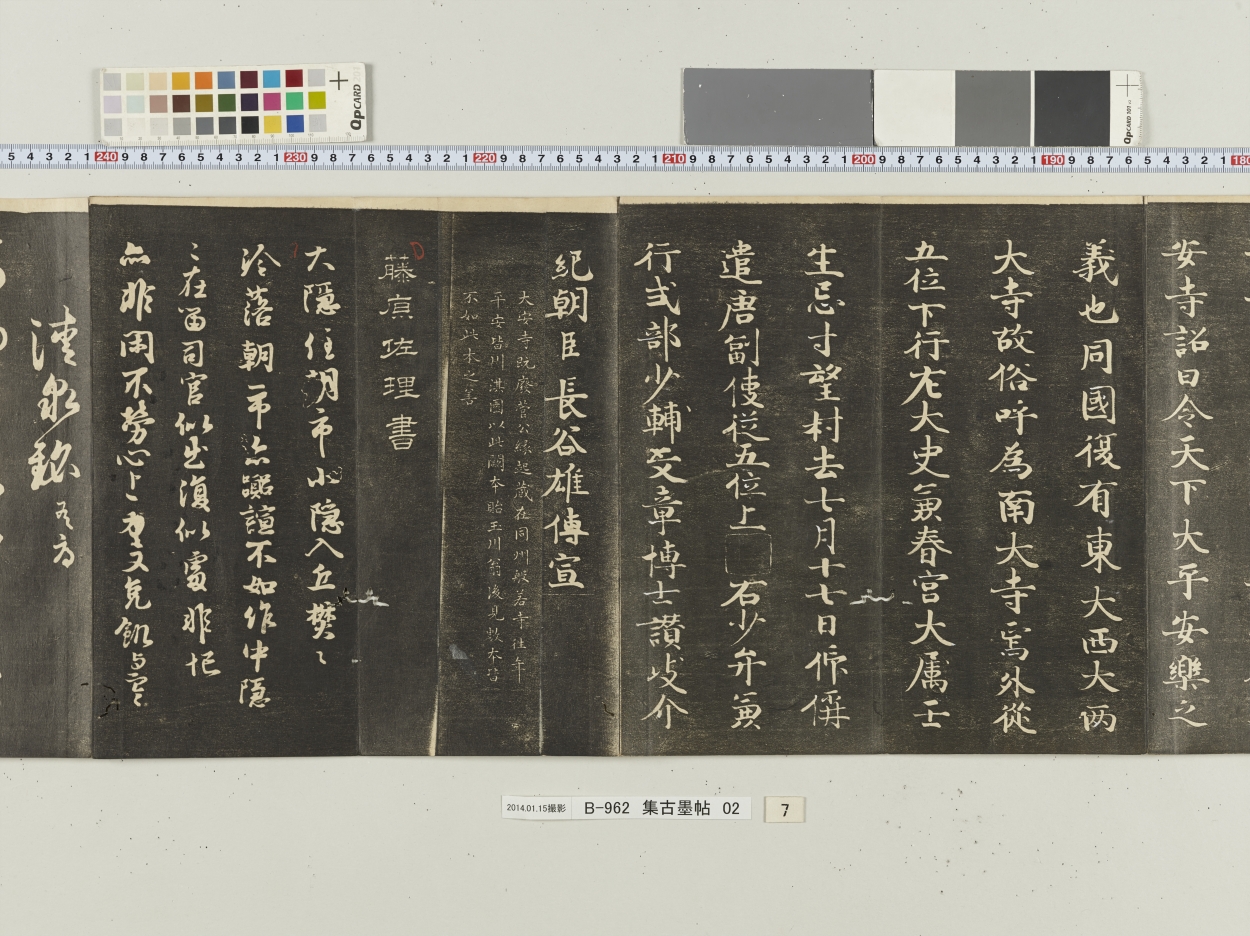 安寺詔曰令天下大平安樂之
義也同國復有東大西大両
大寺故俗呼為南大寺焉外從
五位下行左大史兼春宮大属壬
生忌寸望村去七月十七日作偁
遣唐副使從五位上右少弁兼
行式部少輔文章博士讃岐介
紀朝臣長谷雄傳宣
大安寺既廢菅公縁起蔵在同州般若寺往年
平安皆川淇園以此本貽玉川翁後見數本皆
不如此本之善
藤原佐理書
大隱住朝市小隱入丘樊〻
冷落朝市亦囂諠不如作中隱
〻在留司官似出復似處非忙
亦非閑不勞心与力又免飢与寒
2014.01.15撮影
B-962 集古墨帖 02
7
QpCARD
QpCARD 101
5 4 3 2 1 240 9 8 7 6 5 4 3 2 1 230 9 8 7 6 5 4 3 2 1 220 9 8 7 6 5 4 3 2 1 210 9 8 7 6 5 4 3 2 1 200 9 8 7 6 5 4 3 2 1 190 9 8 7 6 5 4 3 2 1 180